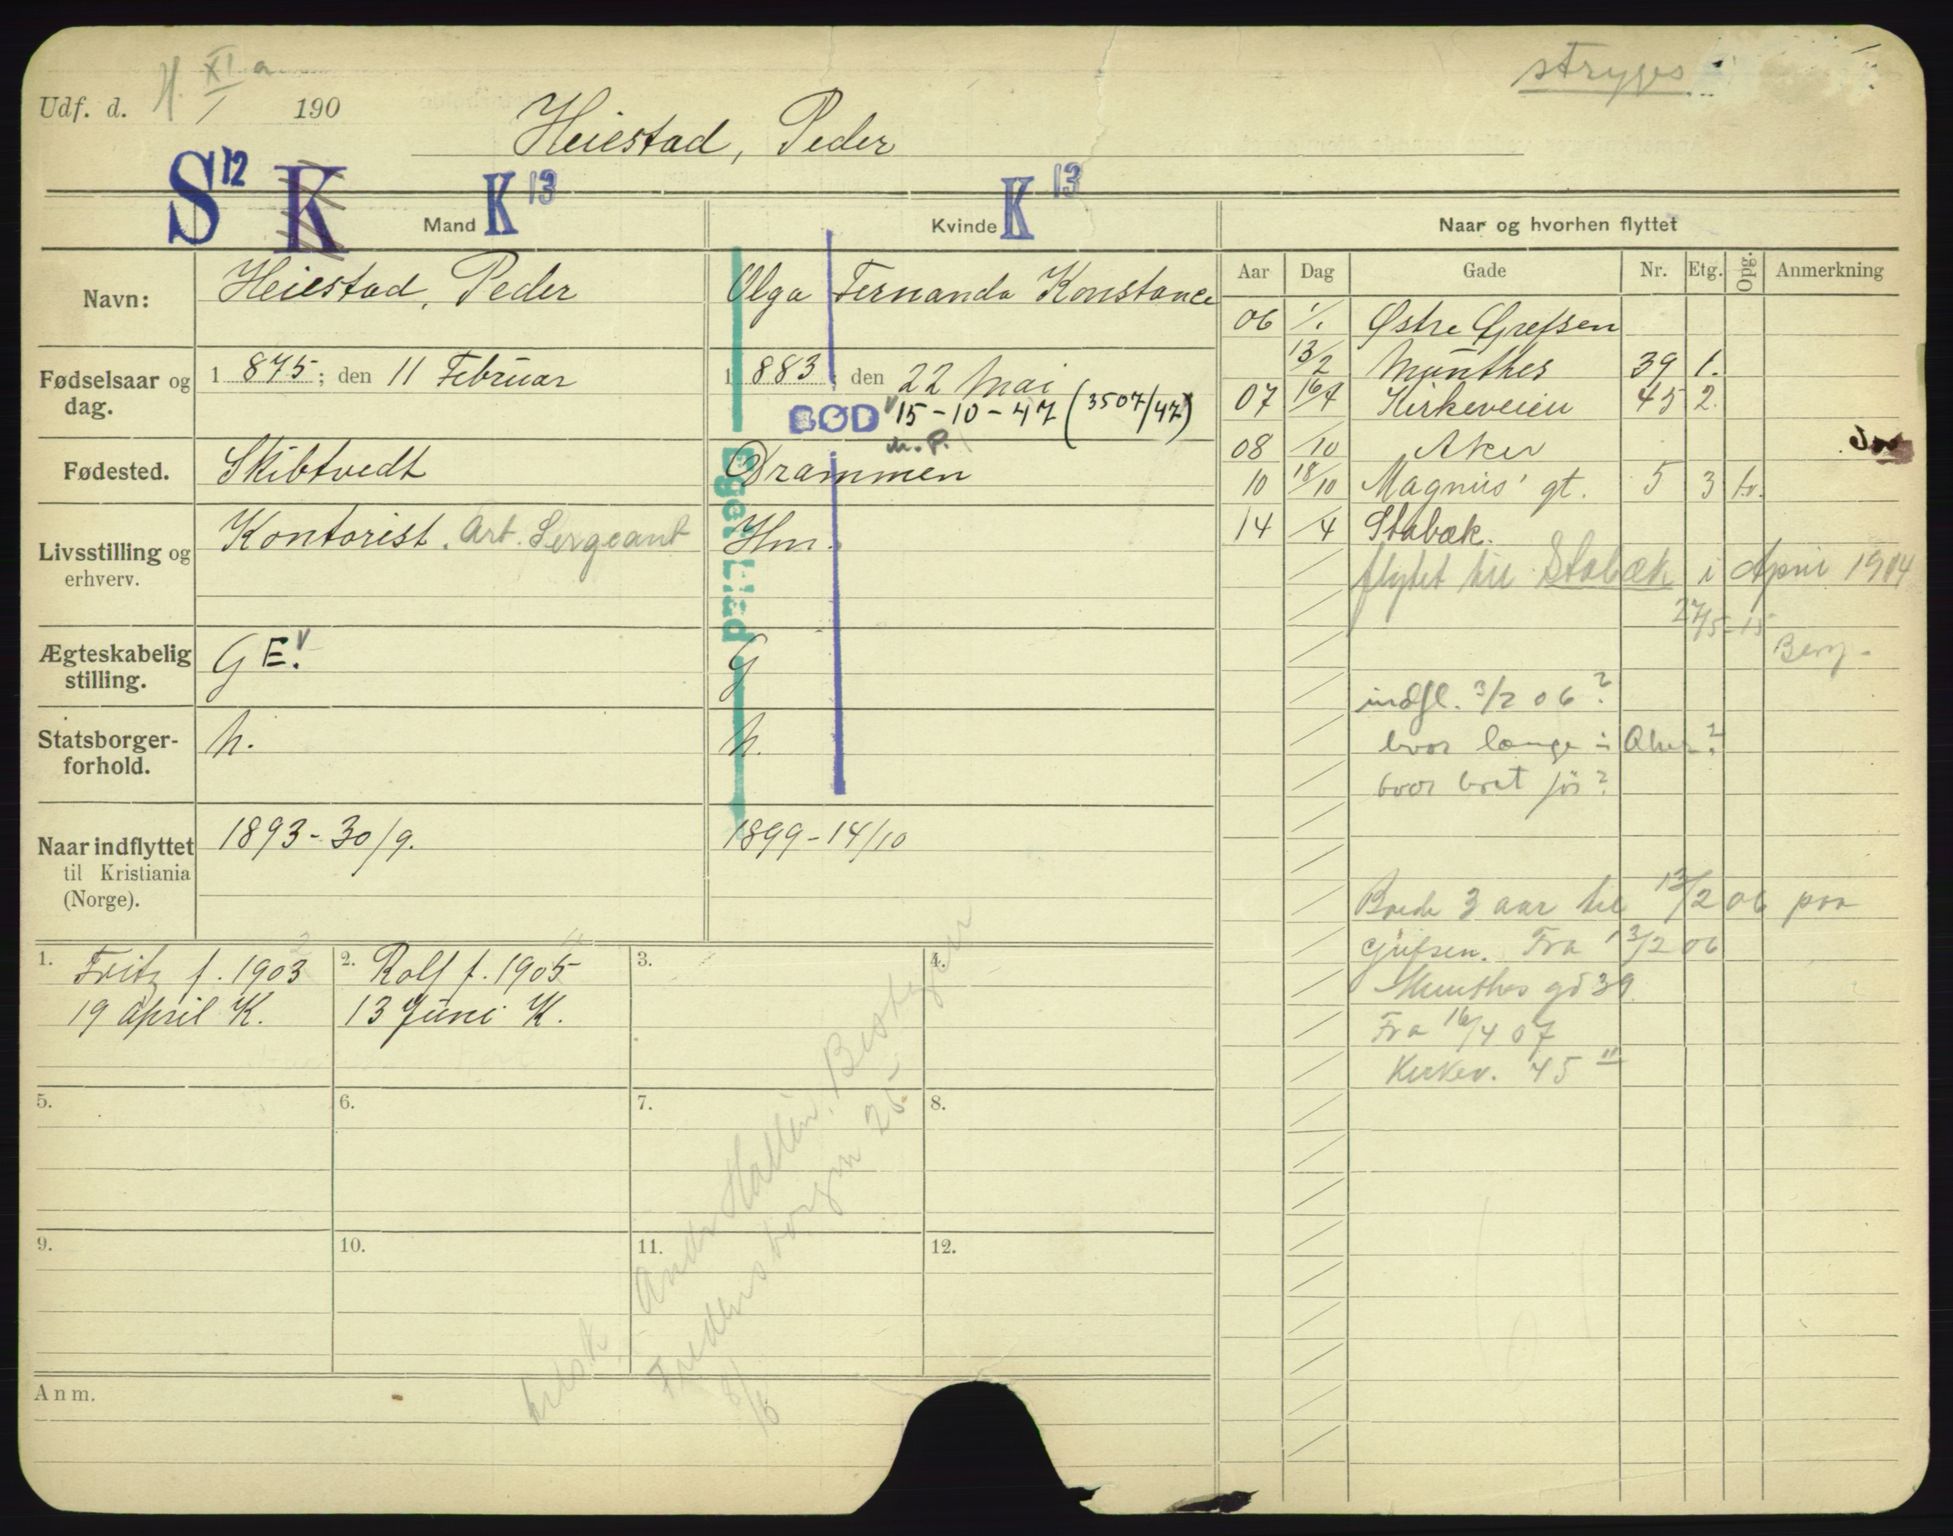 stryges
Udf. d. H. XI a / 1 190
Heiestad, Peder
S 12 K K 13 K 13
Mand Kvinde Naar og hvorhen flyttet
Aar Dag Gade Nr. Etg. Opg. Anmerkning
Navn: Heiestad, Peder Olga Fernanda Konstance
Fødselsaar og dag. 1 875; den 11 Februar 1 883; den 22 Mai
DØD 15-10-47 (3507/47)
m.P.
Fødested. Skibtvedt Drammen
Livsstilling og erhverv. Kontorist. Art. Sergeant Hm.
Eget blad
Ægteskabelig stilling. G E. G
Statsborgerforhold. n. n.
Naar indflyttet til Kristiania (Norge). 1893-30/9. 1899-14/10
1. Fritz f. 1903
19 april K.
2. Rolf f. 1905
13 Juni K.
3.
4.
5.
6.
7.
8.
9.
10.
11.
12.
Anm.
Fredensborgvn 25
8/6
06 1/1 Østre Grefsen
13/2 Munthes 39 1.
07 16/4 Kirkeveien 45 2.
08 /10 Aker
10 18/10 Magnus' gt. 5 3 tv.
14 /4 Stabæk.
flyttet til Stabæk i April 1914
27/5-15
Berg.
indfl. 3/2 06?
hvor længe i Aker?
hvor boet før?
Boede 3 aar til 13/2 06 paa
Grefsen. Fra 13/2 06
Munthes gd 39
Fra 16/4 07
Kirkev. 45 II